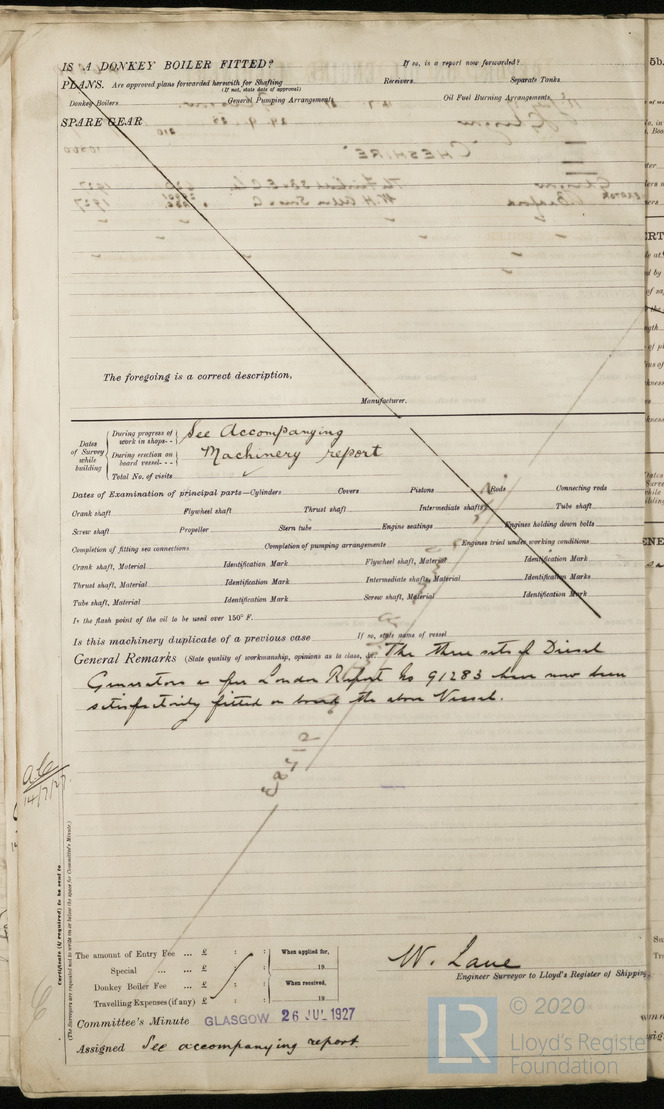 IS A DONKEY BOILER FITTED? If so, is a report now forwarded?
PLANS. Are approved plans forwarded herewith for Shafting Receivers Separate Tanks
(If not, state date of approval)
Donkey Boilers General Pumping Arrangements Oil Fuel Burning Arrangements
SPARE GEAR
The foregoing is a correct description,
Manufacturer.
Dates of Survey while building
During progress of work in shops - -
During erection on board vessel - - -
Total No. of visits
See Accompanying
Machinery report
Dates of Examination of principal parts—Cylinders Covers Pistons Rods Connecting rods
Crank shaft Flywheel shaft Thrust shaft Intermediate shafts Tube shaft
Screw shaft Propeller Stern tube Engine seatings Engines holding down bolts
Completion of fitting sea connections Completion of pumping arrangements Engines tried under working conditions
Crank shaft, Material Identification Mark Flywheel shaft, Material Identification Mark
Thrust shaft, Material Identification Mark Intermediate shafts, Material Identification Marks
Tube shaft, Material Identification Mark Screw shaft, Material Identification Mark
Is the flash point of the oil to be used over 150° F.
Is this machinery duplicate of a previous case If so, state name of vessel
General Remarks (State quality of workmanship, opinions as to class, &c. The three sets of Diesel
Generators as per London Report No 91283 have now been
satisfactorily fitted on board the above Vessel.
14/7/27
Certificate (if required) to be sent to
(The Surveyors are requested not to write on or below the space for Committee's Minute.)
The amount of Entry Fee ... £ : : When applied for,
Special ... £ : : 19
Donkey Boiler Fee £ : : When received,
Travelling Expenses (if any) £ : : 19
W. Lane
Engineer Surveyor to Lloyd's Register of Shipping.
Committee's Minute GLASGOW 26 JUL 1927
Assigned See accompanying report.
LR
© 2020
Lloyd's Register
Foundation